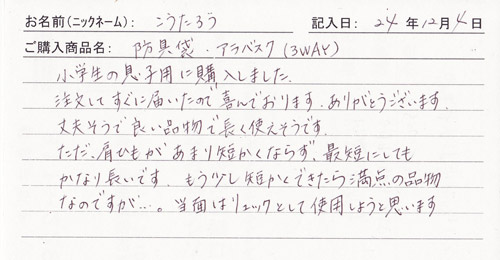 お名前(ニックネーム): こうたろう 記入日: 24年12月4日
ご購入商品名: 防具袋・アラバスク(3WAY)
小学生の息子用に購入しました.
注文してすぐに届いたので喜んでおります.ありがとうございます.
丈夫そうで良い品物で長く使えそうです.
ただ、肩ひもがあまり短かくならず、最短にしても
かなり長いです.もう少し短かくできたら満点の品物
なのですが….当面はリュックとして使用しようと思います